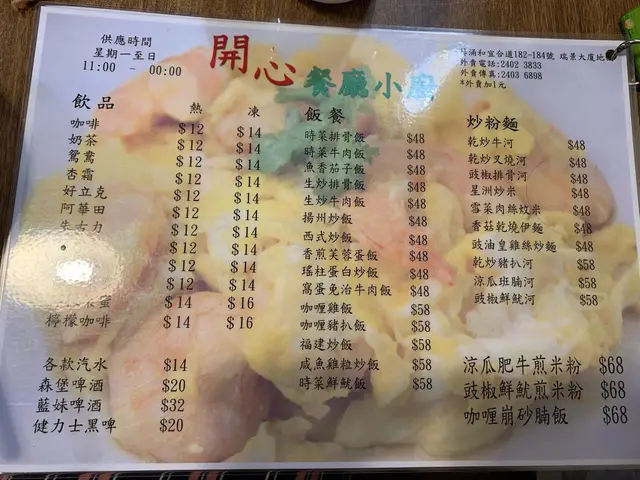 供應時間
星期一至日
11:00 - 00:00
開心餐廳小
涌和宜合道182-184號 瑞景大廈地
外賣電話:2402 3833
外賣傳真:2403 6898
*外賣加1元
飲品 熱 凍
咖啡 $12 $14
奶茶 $12 $14
鴛鴦 $12 $14
杏霜 $12 $14
好立克 $12 $14
阿華田 $12 $14
朱古力 $12 $14
$12 $14
$12 $14
蜜 $14 $16
檸檬咖啡 $14 $16
各款汽水 $14
森堡啤酒 $20
藍妹啤酒 $32
健力士黑啤 $20
飯餐
時菜排骨飯 $48
時菜牛肉飯 $48
魚香茄子飯 $48
生炒排骨飯 $48
生炒牛肉飯 $48
揚州炒飯 $48
西式炒飯 $48
香煎芙蓉蛋飯 $48
瑤柱蛋白炒飯 $48
窩蛋免治牛肉飯 $48
咖喱雞飯 $58
咖喱豬扒飯 $58
福建炒飯 $58
咸魚雞粒炒飯 $58
時菜鮮魷飯 $58
炒粉麵
乾炒牛河 $48
乾炒叉燒河 $48
豉椒排骨河 $48
星洲炒米 $48
雪菜肉絲炆米 $48
香菇乾燒伊麵 $48
豉油皇雞絲炒麵 $48
乾炒豬扒河 $58
涼瓜班腩河 $58
豉椒鮮魷河 $58
涼瓜肥牛煎米粉 $68
豉椒鮮魷煎米粉 $68
咖喱崩砂腩飯 $68